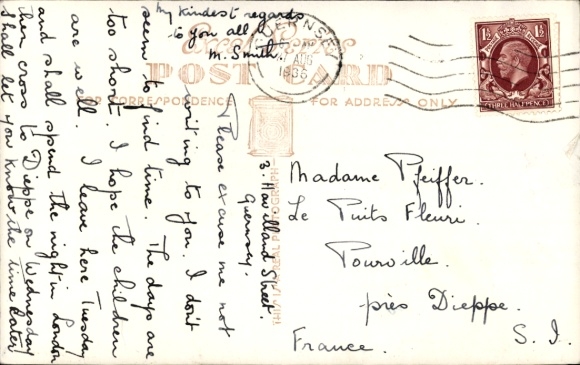 3. Havilland Street.
Guernsey.
Please excuse me not
writing to you. I don't
seem to find time. The days are
too short. I hope the children
are well. I leave here Tuesday
and shall spend the night in London
then cross to Dieppe on Wednesday
I shall let you know the time later
My kindest regards
to you all
M. Smith.
POST CARD
FOR CORRESPONDENCE
FOR ADDRESS ONLY
THIS IS A REAL PHOTOGRAPH
GUERNSEY
AUG
1½
1½
THREE HALFPENCE
Madame Pfeiffer.
Le Puits Fleuri.
Pourville.
près Dieppe.
France.
S. I.